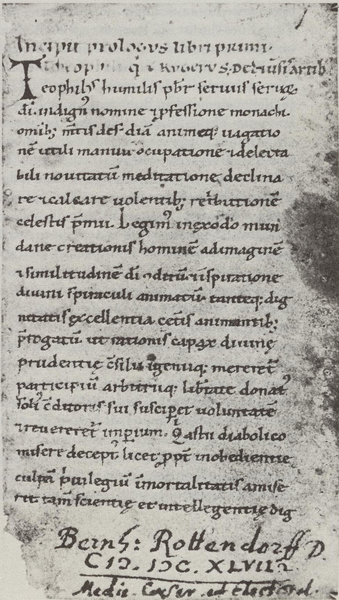 Incipit prologus libri primi.
q̃ & Rugerus. De diuersis artib;
Theophilꝰ humilis pbr̄ seruus seruoꝝ
dī. indignꝰ nomine & ꝓfessione monachi.
omīb; mtis des. diā animeq; uagatio
nē utili manuū ocupatione & delecta
bili nouitatū meditatione declina
re & calcare uolentib; ret͛butionē
celestis p̄mii. Legimꝰ in exordio mun
dane creationis hominē ad imaginē
& similitudinē dī ꝯditū & inspiratione
diuini sp̄iraculi animatū tanteq; dig
nitatis excellentia cet͛is animantib;
p̄rogatū ut rationis capax diuine
prudentie ꝯsilii ingeniiq; mereret͛
participiū arbitriiq; lib͛tate donatꝰ
solī ꝯditoris sui suscip͛et uoluntatē
& reuereret͛ imperium. Qi astu diabolico
misere deceptꝰ licet ꝓpt͛ inobedientie
culpā p͛uilegiū īmortalitatis amise
rit tam̄ scientie et intellegentie dig
Bernh: Rottendorff D
CIↃ. IↃC. XLVIII